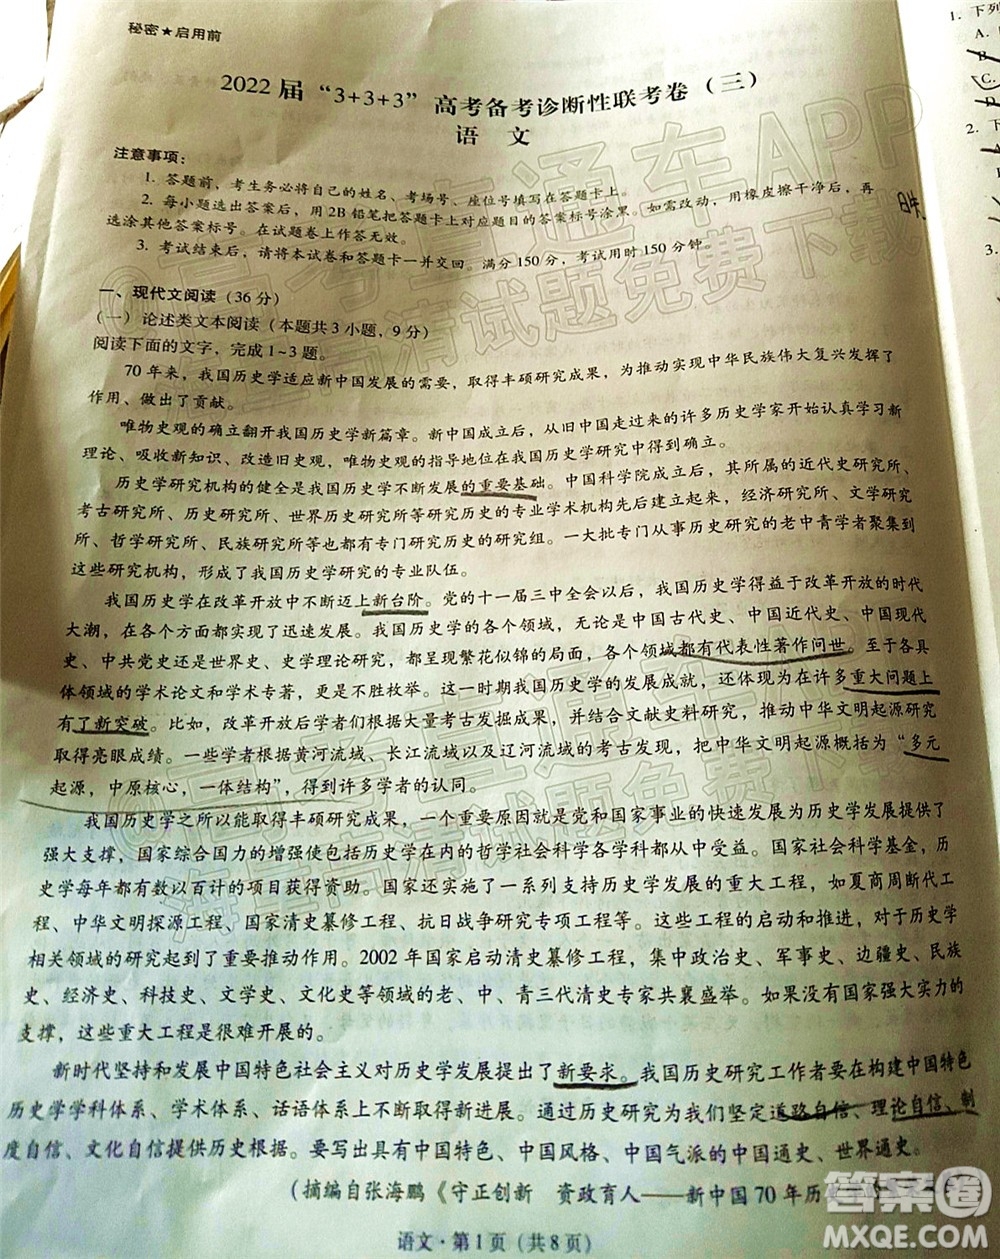 秘密★启用前
2022届“3+3+3”高考备考诊断性联考卷（三）
语 文
注意事项：
1. 答题前，考生务必将自己的姓名、考场号、座位号填写在答题卡上。
2. 每小题选出答案后，用2B铅笔把答题卡上对应题目的答案标号涂黑。如需改动，用橡皮擦干净后，再
选涂其他答案标号。在试题卷上作答无效。
3. 考试结束后，请将本试卷和答题卡一并交回。满分150分，考试用时150分钟。
一、现代文阅读（36分）
（一）论述类文本阅读（本题共3小题，9分）
阅读下面的文字，完成1~3题。
70年来，我国历史学适应新中国发展的需要，取得丰硕研究成果，为推动实现中华民族伟大复兴发挥了
作用、做出了贡献。
唯物史观的确立翻开我国历史学新篇章。新中国成立后，从旧中国走过来的许多历史学家开始认真学习新
理论、吸收新知识、改造旧史观，唯物史观的指导地位在我国历史学研究中得到确立。
历史学研究机构的健全是我国历史学不断发展的重要基础。中国科学院成立后，其所属的近代史研究所、
考古研究所、历史研究所、世界历史研究所等研究历史的专业学术机构先后建立起来，经济研究所、文学研究
所、哲学研究所、民族研究所等也都有专门研究历史的研究组。一大批专门从事历史研究的老中青学者聚集到
这些研究机构，形成了我国历史学研究的专业队伍。
我国历史学在改革开放中不断迈上新台阶。党的十一届三中全会以后，我国历史学得益于改革开放的时代
大潮，在许多方面都实现了迅速发展。我国历史学的各个领域，无论是中国古代史、中国近代史、中国现代
史、中共党史还是世界史、史学理论研究，都呈现繁花似锦的局面，各个领域都有代表性著作问世。至于各具
体领域的学术论文和学术专著，更是不胜枚举。这一时期我国历史学的发展成就，还体现在许多重大问题上
有了新突破。比如，改革开放后学者们根据大量考古发掘成果，并结合文献史料研究，推动中华文明起源研究
取得亮眼成绩。一些学者根据黄河流域、长江流域以及辽河流域的考古发现，把中华文明起源概括为“多元
起源，中原核心，一体结构”，得到许多学者的认同。
我国历史学之所以能取得丰硕研究成果，一个重要原因就是党和国家事业的快速发展为历史学发展提供了
强大支撑，国家综合国力的增强使包括历史学在内的哲学社会科学各学科都从中受益。国家社会科学基金，历
史学每年都有数以百计的项目获得资助。国家还实施了一系列支持历史学发展的重大工程，如夏商周断代工
程、中华文明探源工程、国家清史纂修工程、抗日战争研究专项工程等。这些工程的启动和推进，对于历史学
相关领域的研究起到了重要推动作用。2002年国家启动清史纂修工程，集中政治史、军事史、边疆史、民族
史、经济史、科技史、文学史、文化史等领域的老、中、青三代清史专家共襄盛举。如果没有国家强大实力的
支撑，这些重大工程是很难开展的。
新时代坚持和发展中国特色社会主义对历史学发展提出了新要求。我国历史研究工作者要在构建中国特色
历史学学科体系、学术体系、话语体系上不断取得新进展。通过历史研究为我们坚定道路自信、理论自信、制
度自信、文化自信提供历史根据。要写出具有中国特色、中国风格、中国气派的中国通史、世界通史。
（摘编自张海鹏《守正创新 资政育人——新中国70年历
语文·第1页（共8页）
1. 下列
A.
B.
C.
2. 下
3.
答案圈
MXQE.COM